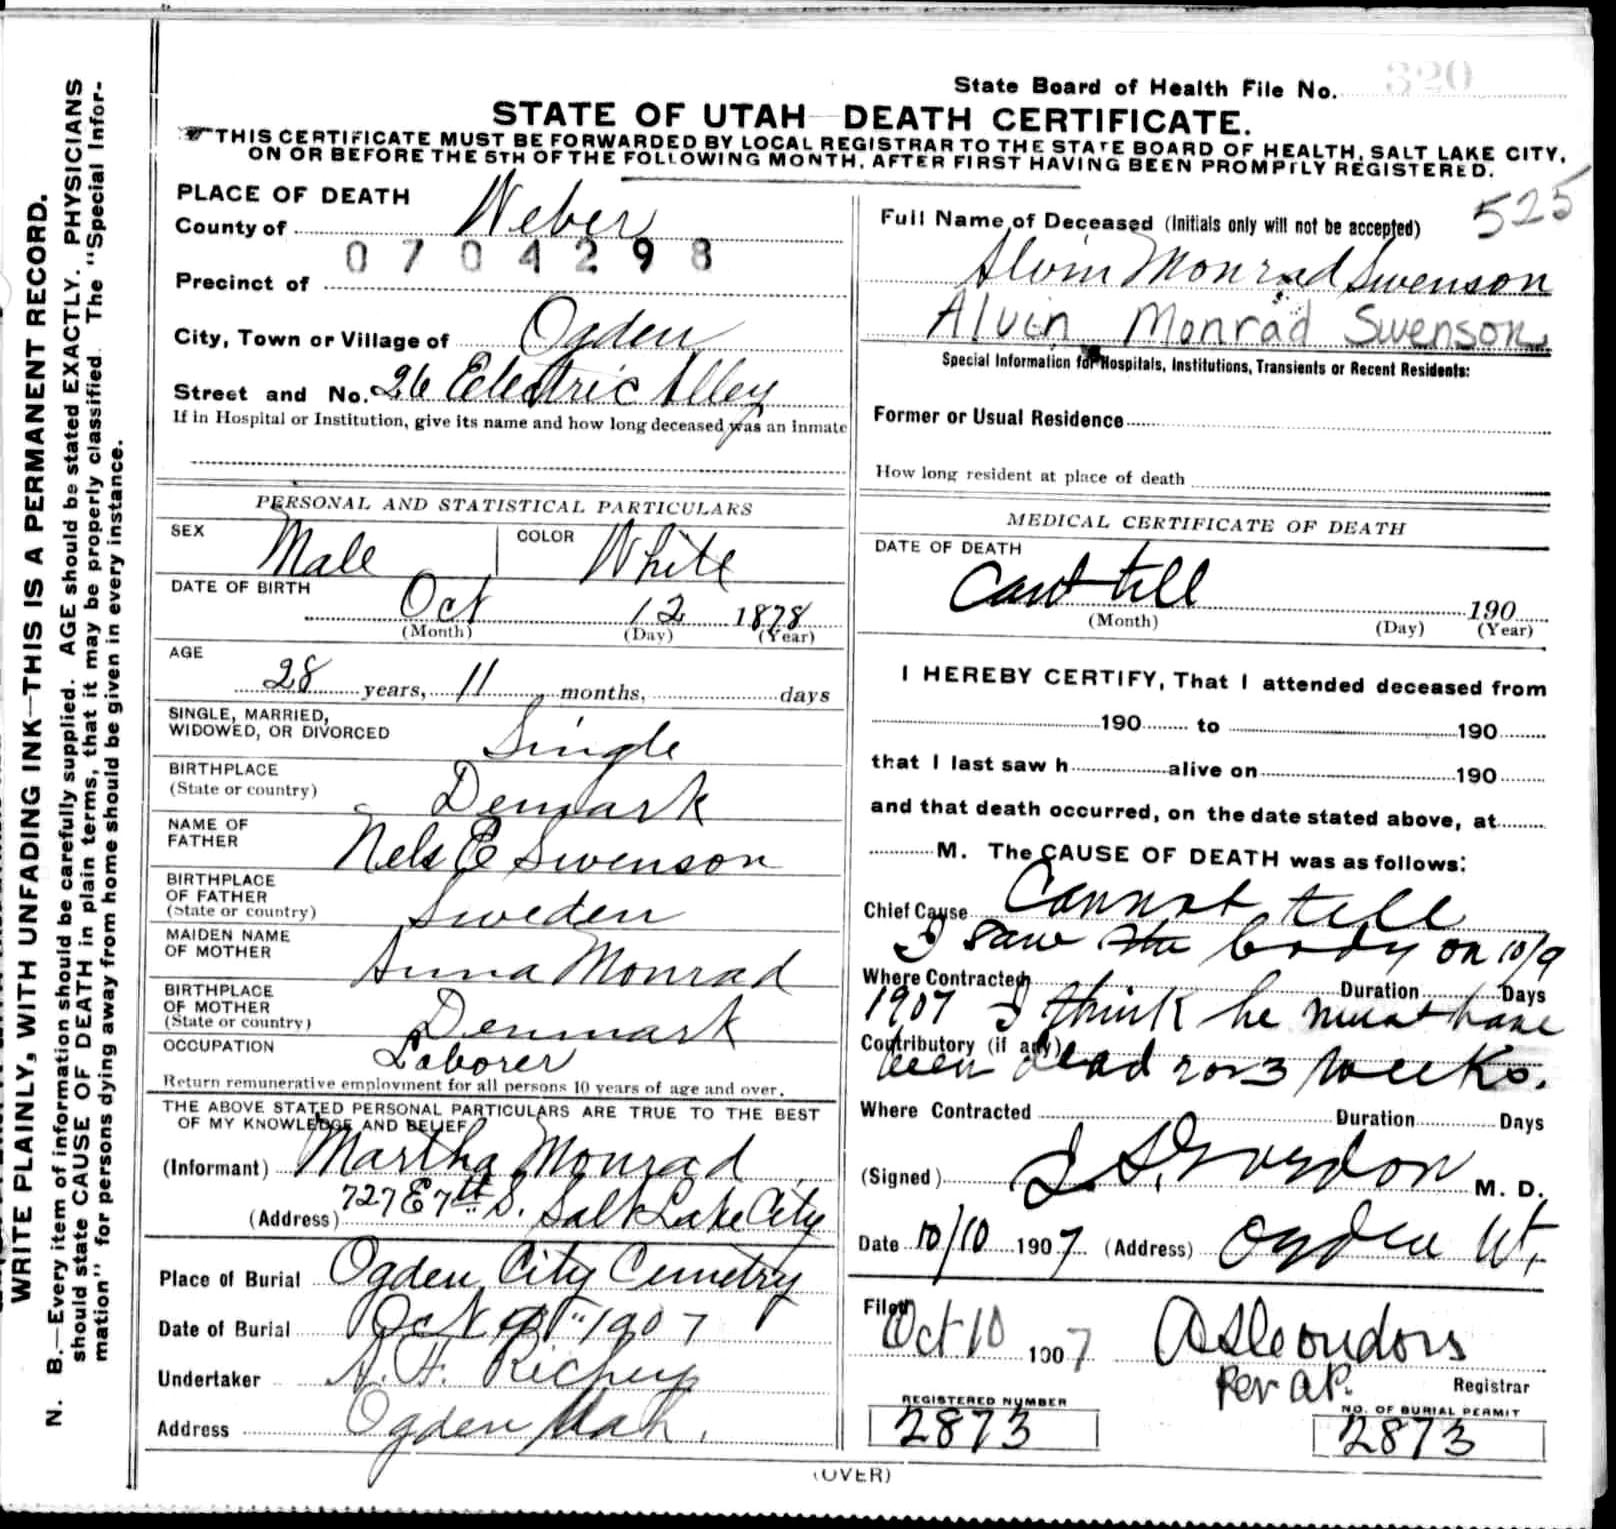 WRITE PLAINLY, WITH UNFADING INK—THIS IS A PERMANENT RECORD.
N. B.—Every item of information should be carefully supplied. AGE should be stated EXACTLY. PHYSICIANS
should state CAUSE OF DEATH in plain terms, that it may be properly classified. The "Special Infor-
mation" for persons dying away from home should be given in every instance.
State Board of Health File No. 320
STATE OF UTAH—DEATH CERTIFICATE.
THIS CERTIFICATE MUST BE FORWARDED BY LOCAL REGISTRAR TO THE STATE BOARD OF HEALTH, SALT LAKE CITY,
ON OR BEFORE THE 5TH OF THE FOLLOWING MONTH, AFTER FIRST HAVING BEEN PROMPTLY REGISTERED.
PLACE OF DEATH
County of Weber
0704298
Precinct of
City, Town or Village of Ogden
Street and No. 26 Electric Alley
If in Hospital or Institution, give its name and how long deceased was an inmate
PERSONAL AND STATISTICAL PARTICULARS
SEX Male COLOR White
DATE OF BIRTH
Oct 12 1878
(Month) (Day) (Year)
AGE
28 years, 11 months, days
SINGLE, MARRIED,
WIDOWED, OR DIVORCED Single
BIRTHPLACE
(State or country) Denmark
NAME OF
FATHER Nels E Swenson
BIRTHPLACE
OF FATHER
(State or country) Sweden
MAIDEN NAME
OF MOTHER Anna Monrad
BIRTHPLACE
OF MOTHER
(State or country) Denmark
OCCUPATION Laborer
Return remunerative employment for all persons 10 years of age and over.
THE ABOVE STATED PERSONAL PARTICULARS ARE TRUE TO THE BEST
OF MY KNOWLEDGE AND BELIEF
(Informant) Martha Monrad
(Address) 727 E 7th S. Salt Lake City
Place of Burial Ogden City Cemetry
Date of Burial Oct 1907
Undertaker Richey
Address Ogden Utah.
525
Full Name of Deceased (Initials only will not be accepted)
Alvin Monrad Swenson
Alvin Monrad Swenson
Special Information for Hospitals, Institutions, Transients or Recent Residents:
Former or Usual Residence
How long resident at place of death
MEDICAL CERTIFICATE OF DEATH
DATE OF DEATH
Cant tell 190
(Month) (Day) (Year)
I HEREBY CERTIFY, That I attended deceased from
190 to 190
that I last saw h alive on 190
and that death occurred, on the date stated above, at
M. The CAUSE OF DEATH was as follows:
Chief Cause Cannot tell
I saw the body on 10/9
Where Contracted Duration Days
1907 I think he must have
Contributory (if any)
been dead 2 or 3 weeks.
Where Contracted Duration Days
(Signed) Gordon M. D.
Date 10/10 1907 (Address) Ogden Ut.
Filed Oct 10 1907
Per
Registrar
REGISTERED NUMBER
2873
NO. OF BURIAL PERMIT
2873
(OVER)